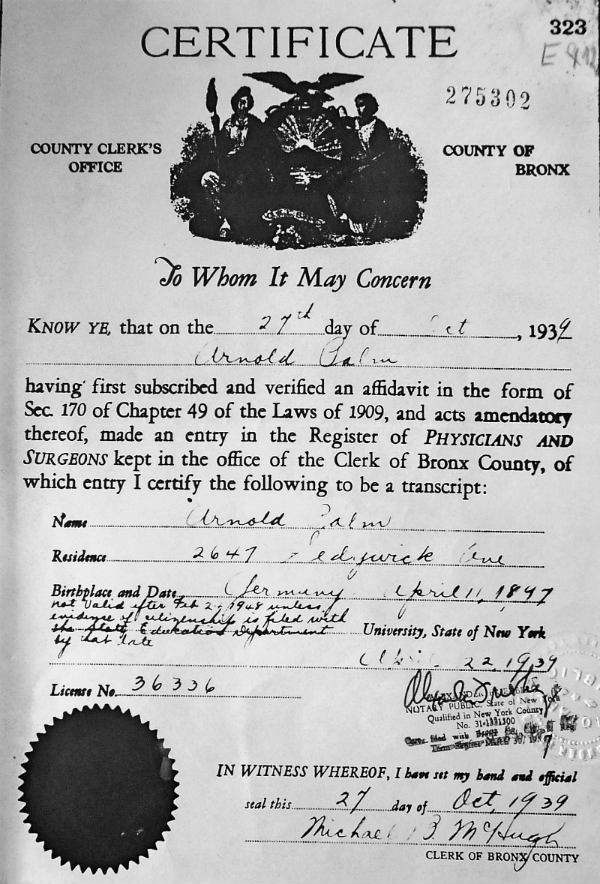 323
CERTIFICATE
275302
COUNTY CLERK'S
OFFICE
COUNTY OF
BRONX
To Whom It May Concern
KNOW YE, that on the 27th day of Oct, 1939
Arnold Palm
having first subscribed and verified an affidavit in the form of
Sec. 170 of Chapter 49 of the Laws of 1909, and acts amendatory
thereof, made an entry in the Register of PHYSICIANS AND
SURGEONS kept in the office of the Clerk of Bronx County, of
which entry I certify the following to be a transcript:
Name Arnold Palm
Residence 2647 Sedgwick Ave
Birthplace and Date Germany April 11, 1897
not valid after Feb 2, 1948 unless
evidence of citizenship is filed with
the State Education Department
by that date
University, State of New York
22, 1939
License No. 36336
NOTARY PUBLIC, State of New York
Qualified in New York County
No. 31-1331300
IN WITNESS WHEREOF, I have set my hand and official
seal this 27 day of Oct, 1939
Michael B McHugh
CLERK OF BRONX COUNTY